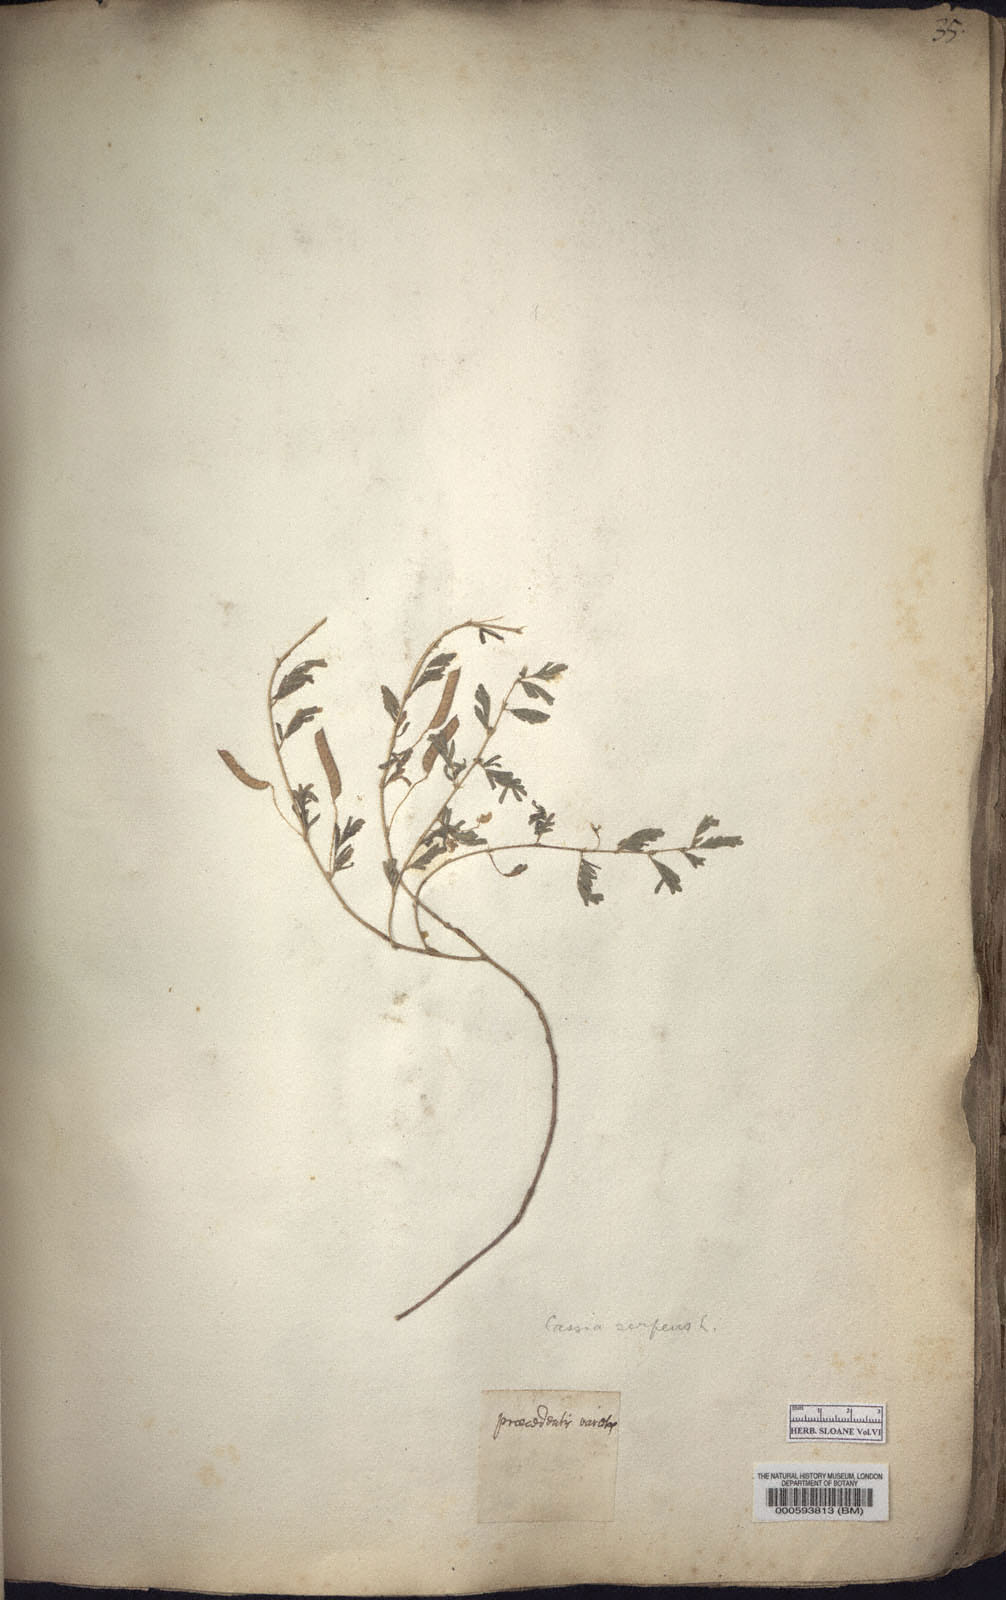 35.
Cassia serpens L.
præcedentis varietas
cm 1 2 3
HERB. SLOANE Vol.VI
THE NATURAL HISTORY MUSEUM, LONDON
DEPARTMENT OF BOTANY
000593813 (BM)